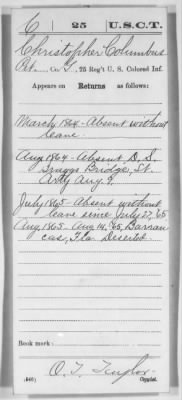 C 25 U.S.C.T.
Christopher Columbus
Pvt., Co. G, 25 Reg't U. S. Colored Inf.
Appears on Returns as follows:
March 1864 - Absent without
leave.
Aug 1864 - Absent D. S.
Bridge, St.
Artly Aug. 9.
July 1865 - Absent without
leave since July 27, 65
Aug 1865 - Aug 14, 65, Barran
cas, Fla Deserted.
Book mark:
O. T. Taylor
(546) Copyist.